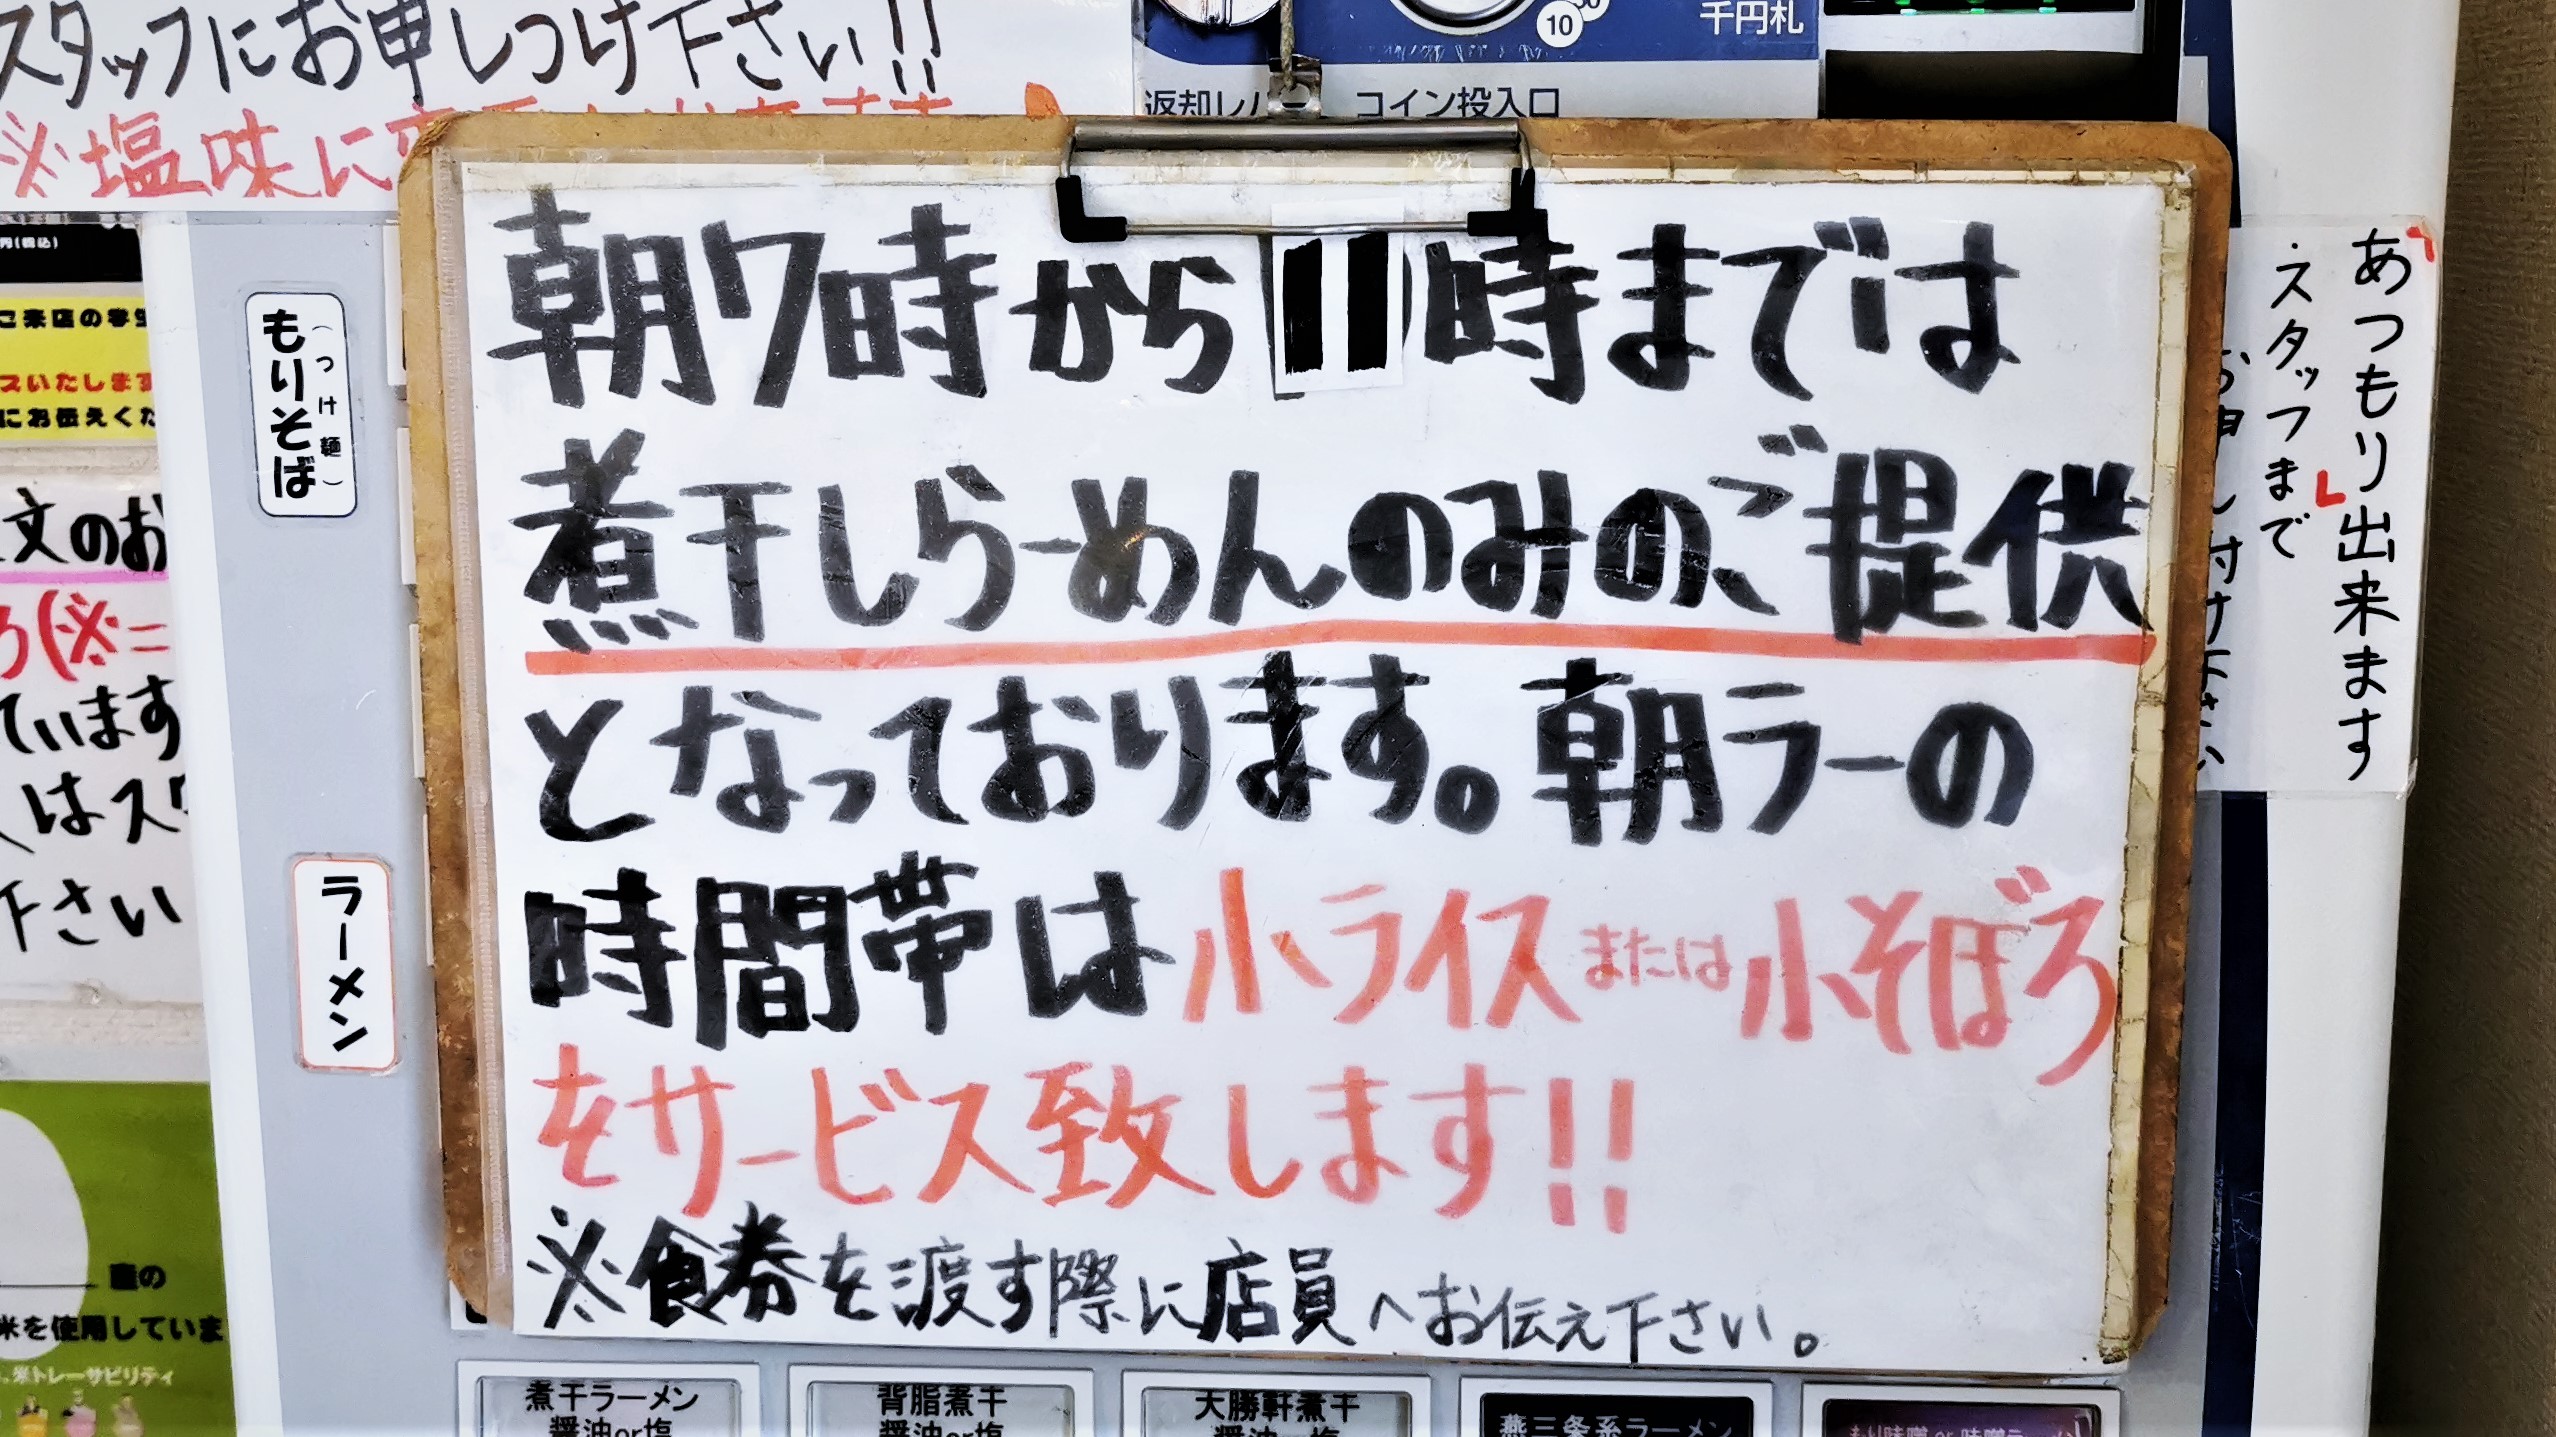 スタッフにお申しつけ下さい!!
※塩味に
10
千円札
返却レバー
コイン投入口
円(税込)
もりそば
(つけ麺)
ラーメン
朝7時から11時までは
煮干しらーめんのみの、ご提供
となっております。朝ラーの
時間帯は小ライスまたは小そぼろ
をサービス致します!!
※食券を渡す際に店員へお伝え下さい。
あつもり出来ます
・スタッフまで
お申し付け下さい
ご来店の学生
スいたします
にお伝えくだ
文のお
ろ(※二
ています
はスタ
下さい
産の
米を使用していま
米トレーサビリティ
煮干ラーメン
醤油or塩
背脂煮干
醤油or塩
大勝軒煮干
燕三条系ラーメン